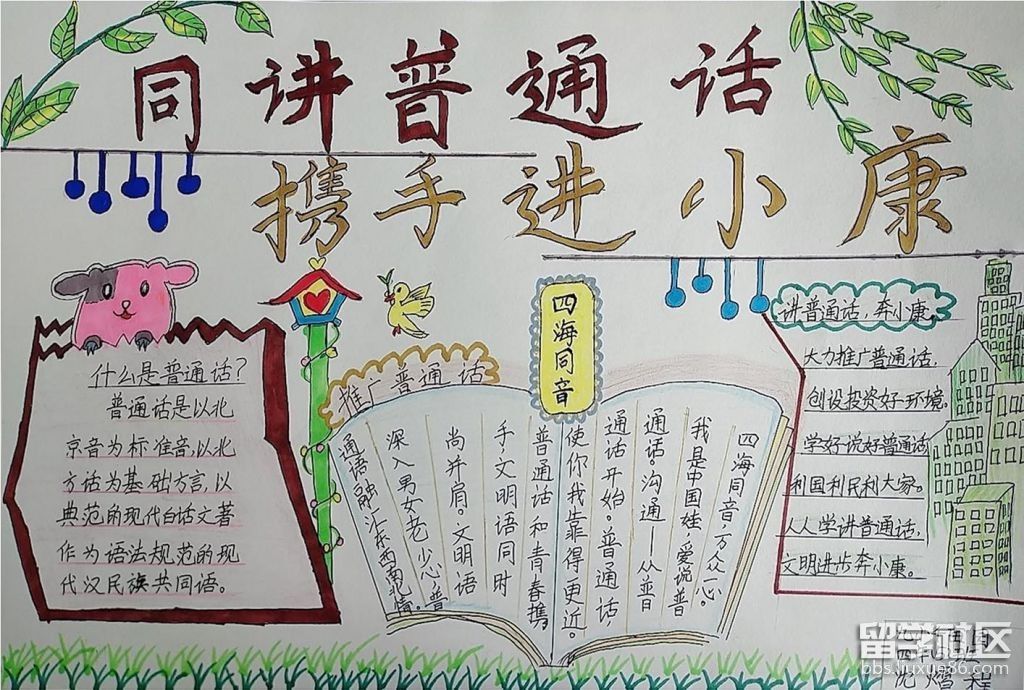 同讲普通话
携手进小康
什么是普通话?
普通话是以北
京音为标准音,以北
方话为基础方言,以
典范的现代白话文著
作为语法规范的现
代汉民族共同语。
推广普通话
四海同音
四海同音万众一心。
我是中国娃,爱说普
通话。沟通——从普
通话开始。普通话
使你我靠得更近。
普通话和青春携
手,文明语同时
尚并肩。文明语
深入男女老少心,普
通话融汇东西南北情。
讲普通话,奔小康。
大力推广普通话,
创设投资好环境。
学好说好普通话
利国利民利大家。
人人学讲普通话,
文明进步奔小康。
留学社区
bbs.liuxue86.com